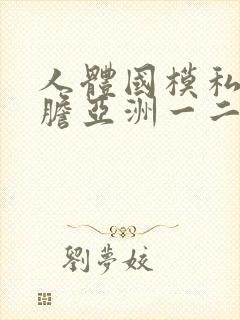 人體國模私
膽亞洲一二
劉夢姣